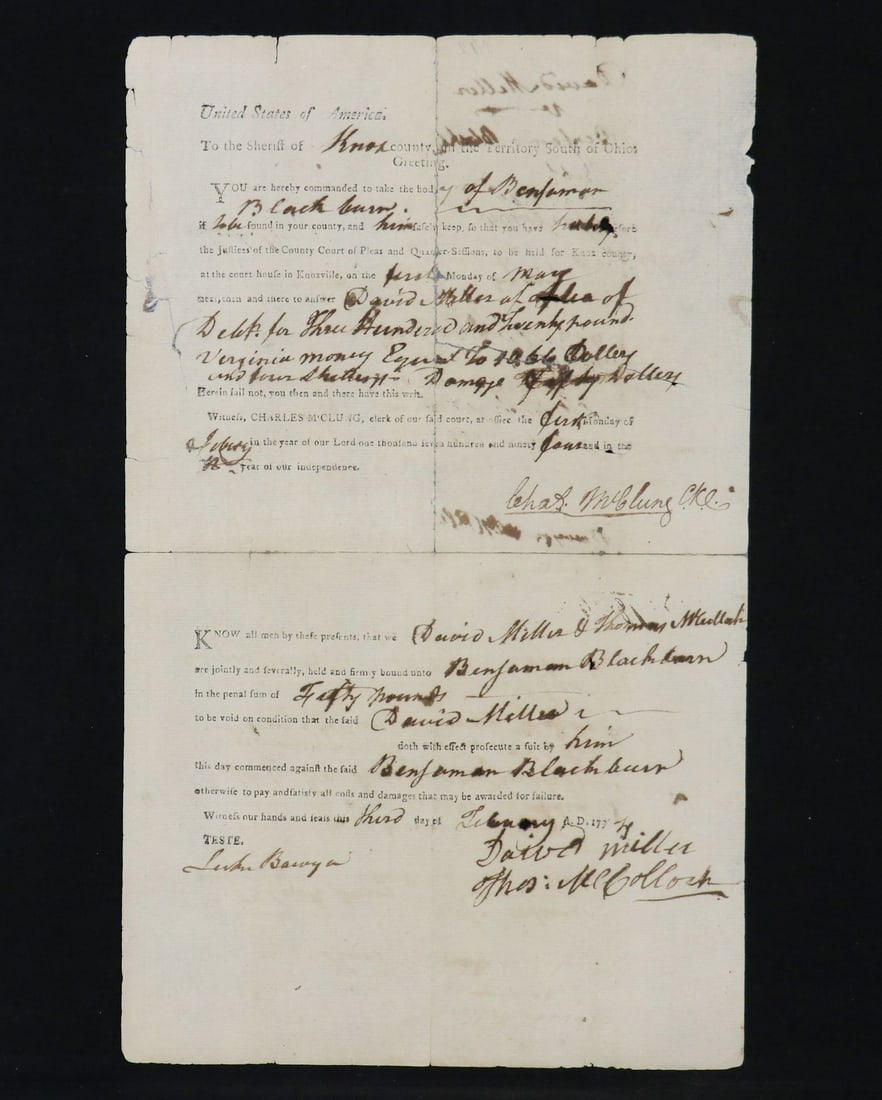 United States of America.
To the Sheriff of Knox county, in the Territory South of Ohio:
Greeting.
YOU are hereby commanded to take the body of Benjaman
Blackburn.
if to be found in your county, and him safely keep, so that you have before
the Justices of the County Court of Pleas and Quarter-Sessions, to be held for Knox county,
at the court house in Knoxville, on the first Monday of May
next, then and there to answer David Miller of a plea of
Debt for Three Hundred and Twenty pound
Virginia money Equal to 1066 Dollers
and four Damage Dollers
Herein fail not, you then and there have this writ.
Witness, CHARLES M'CLUNG, clerk of our said court, at office the first Monday of
in the year of our Lord one thousand seven hundred and ninety four and in the
year of our independence.
Chas. McClung C.K.C.
KNOW all men by these presents, that we David Miller & Thomas
are jointly and severally, held and firmly bound unto Benjaman Blackburn
in the penal sum of Fifty pounds
to be void on condition that the said David Miller
doth with effect prosecute a suit by him
this day commenced against the said Benjaman Blackburn
otherwise to pay and satisfy all costs and damages that may be awarded for failure.
Witness our hands and seals this third day of A.D. 1794
TESTE. David Miller
Thos: McCollock